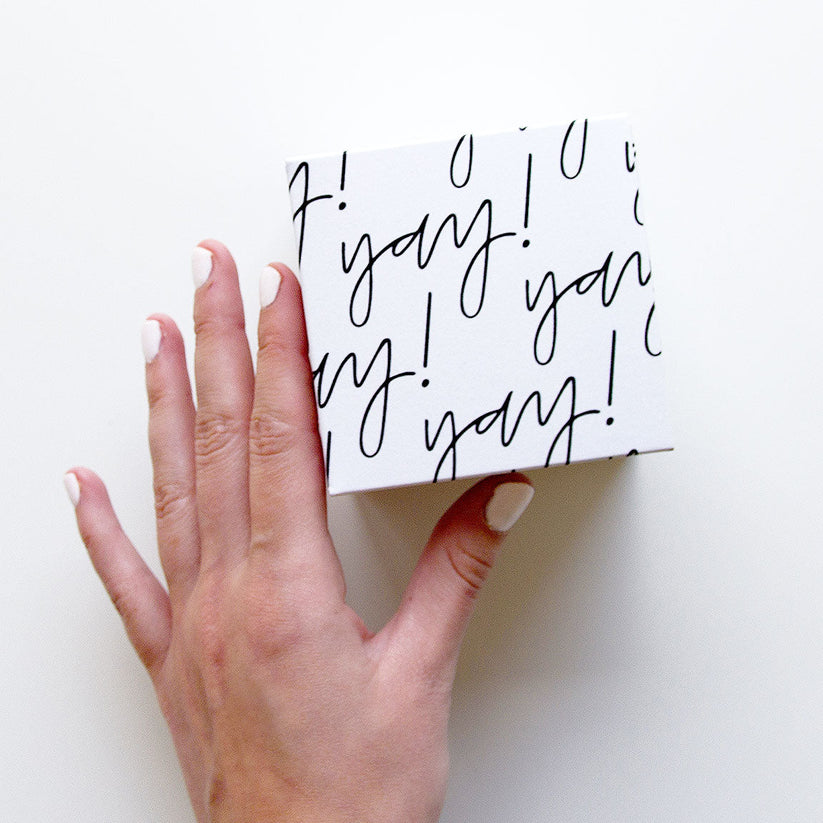 y!
yay!
yay
ay!
yay!